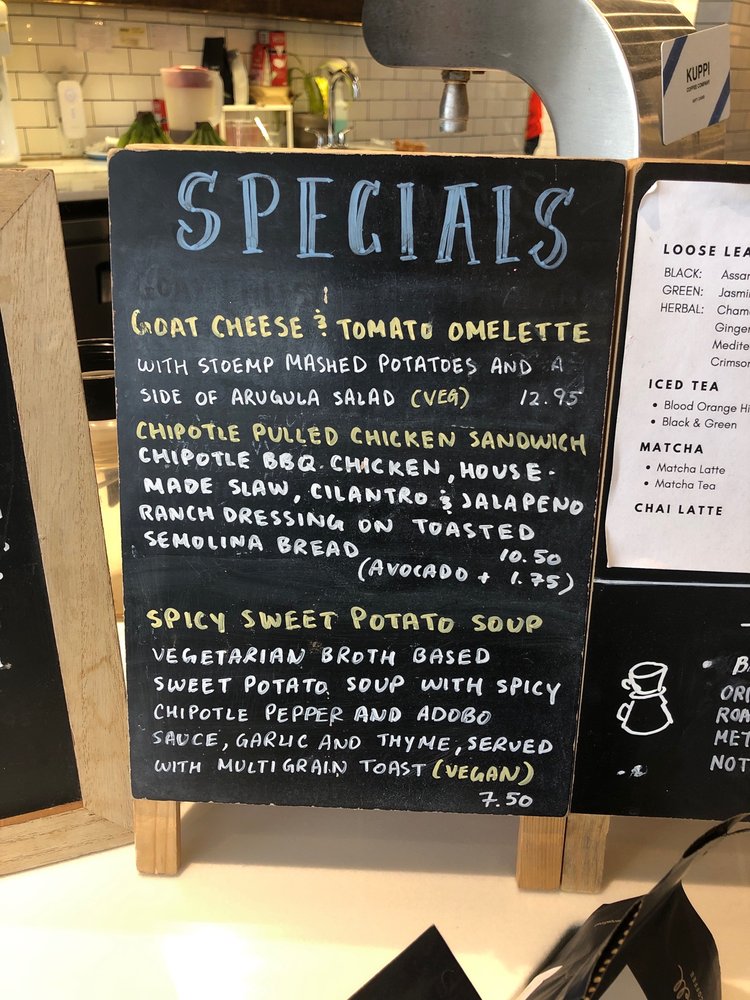 KUPPI
COFFEE COMPANY
GIFT CARD
SPECIALS
GOAT CHEESE & TOMATO OMELETTE
WITH STOEMP MASHED POTATOES AND A
SIDE OF ARUGULA SALAD (VEG) 12.95
CHIPOTLE PULLED CHICKEN SANDWICH
CHIPOTLE BBQ CHICKEN, HOUSE-
MADE SLAW, CILANTRO & JALAPENO
RANCH DRESSING ON TOASTED
SEMOLINA BREAD 10.50
(AVOCADO + 1.75)
SPICY SWEET POTATO SOUP
VEGETARIAN BROTH BASED
SWEET POTATO SOUP WITH SPICY
CHIPOTLE PEPPER AND ADOBO
SAUCE, GARLIC AND THYME, SERVED
WITH MULTIGRAIN TOAST (VEGAN)
7.50
LOOSE LEA
BLACK: Assa
GREEN: Jasmi
HERBAL: Cham
Ginger
Medite
Crimson
ICED TEA
• Blood Orange Hi
• Black & Green
MATCHA
• Matcha Latte
• Matcha Tea
CHAI LATTE
• B
ORI
ROA
MET
NOT